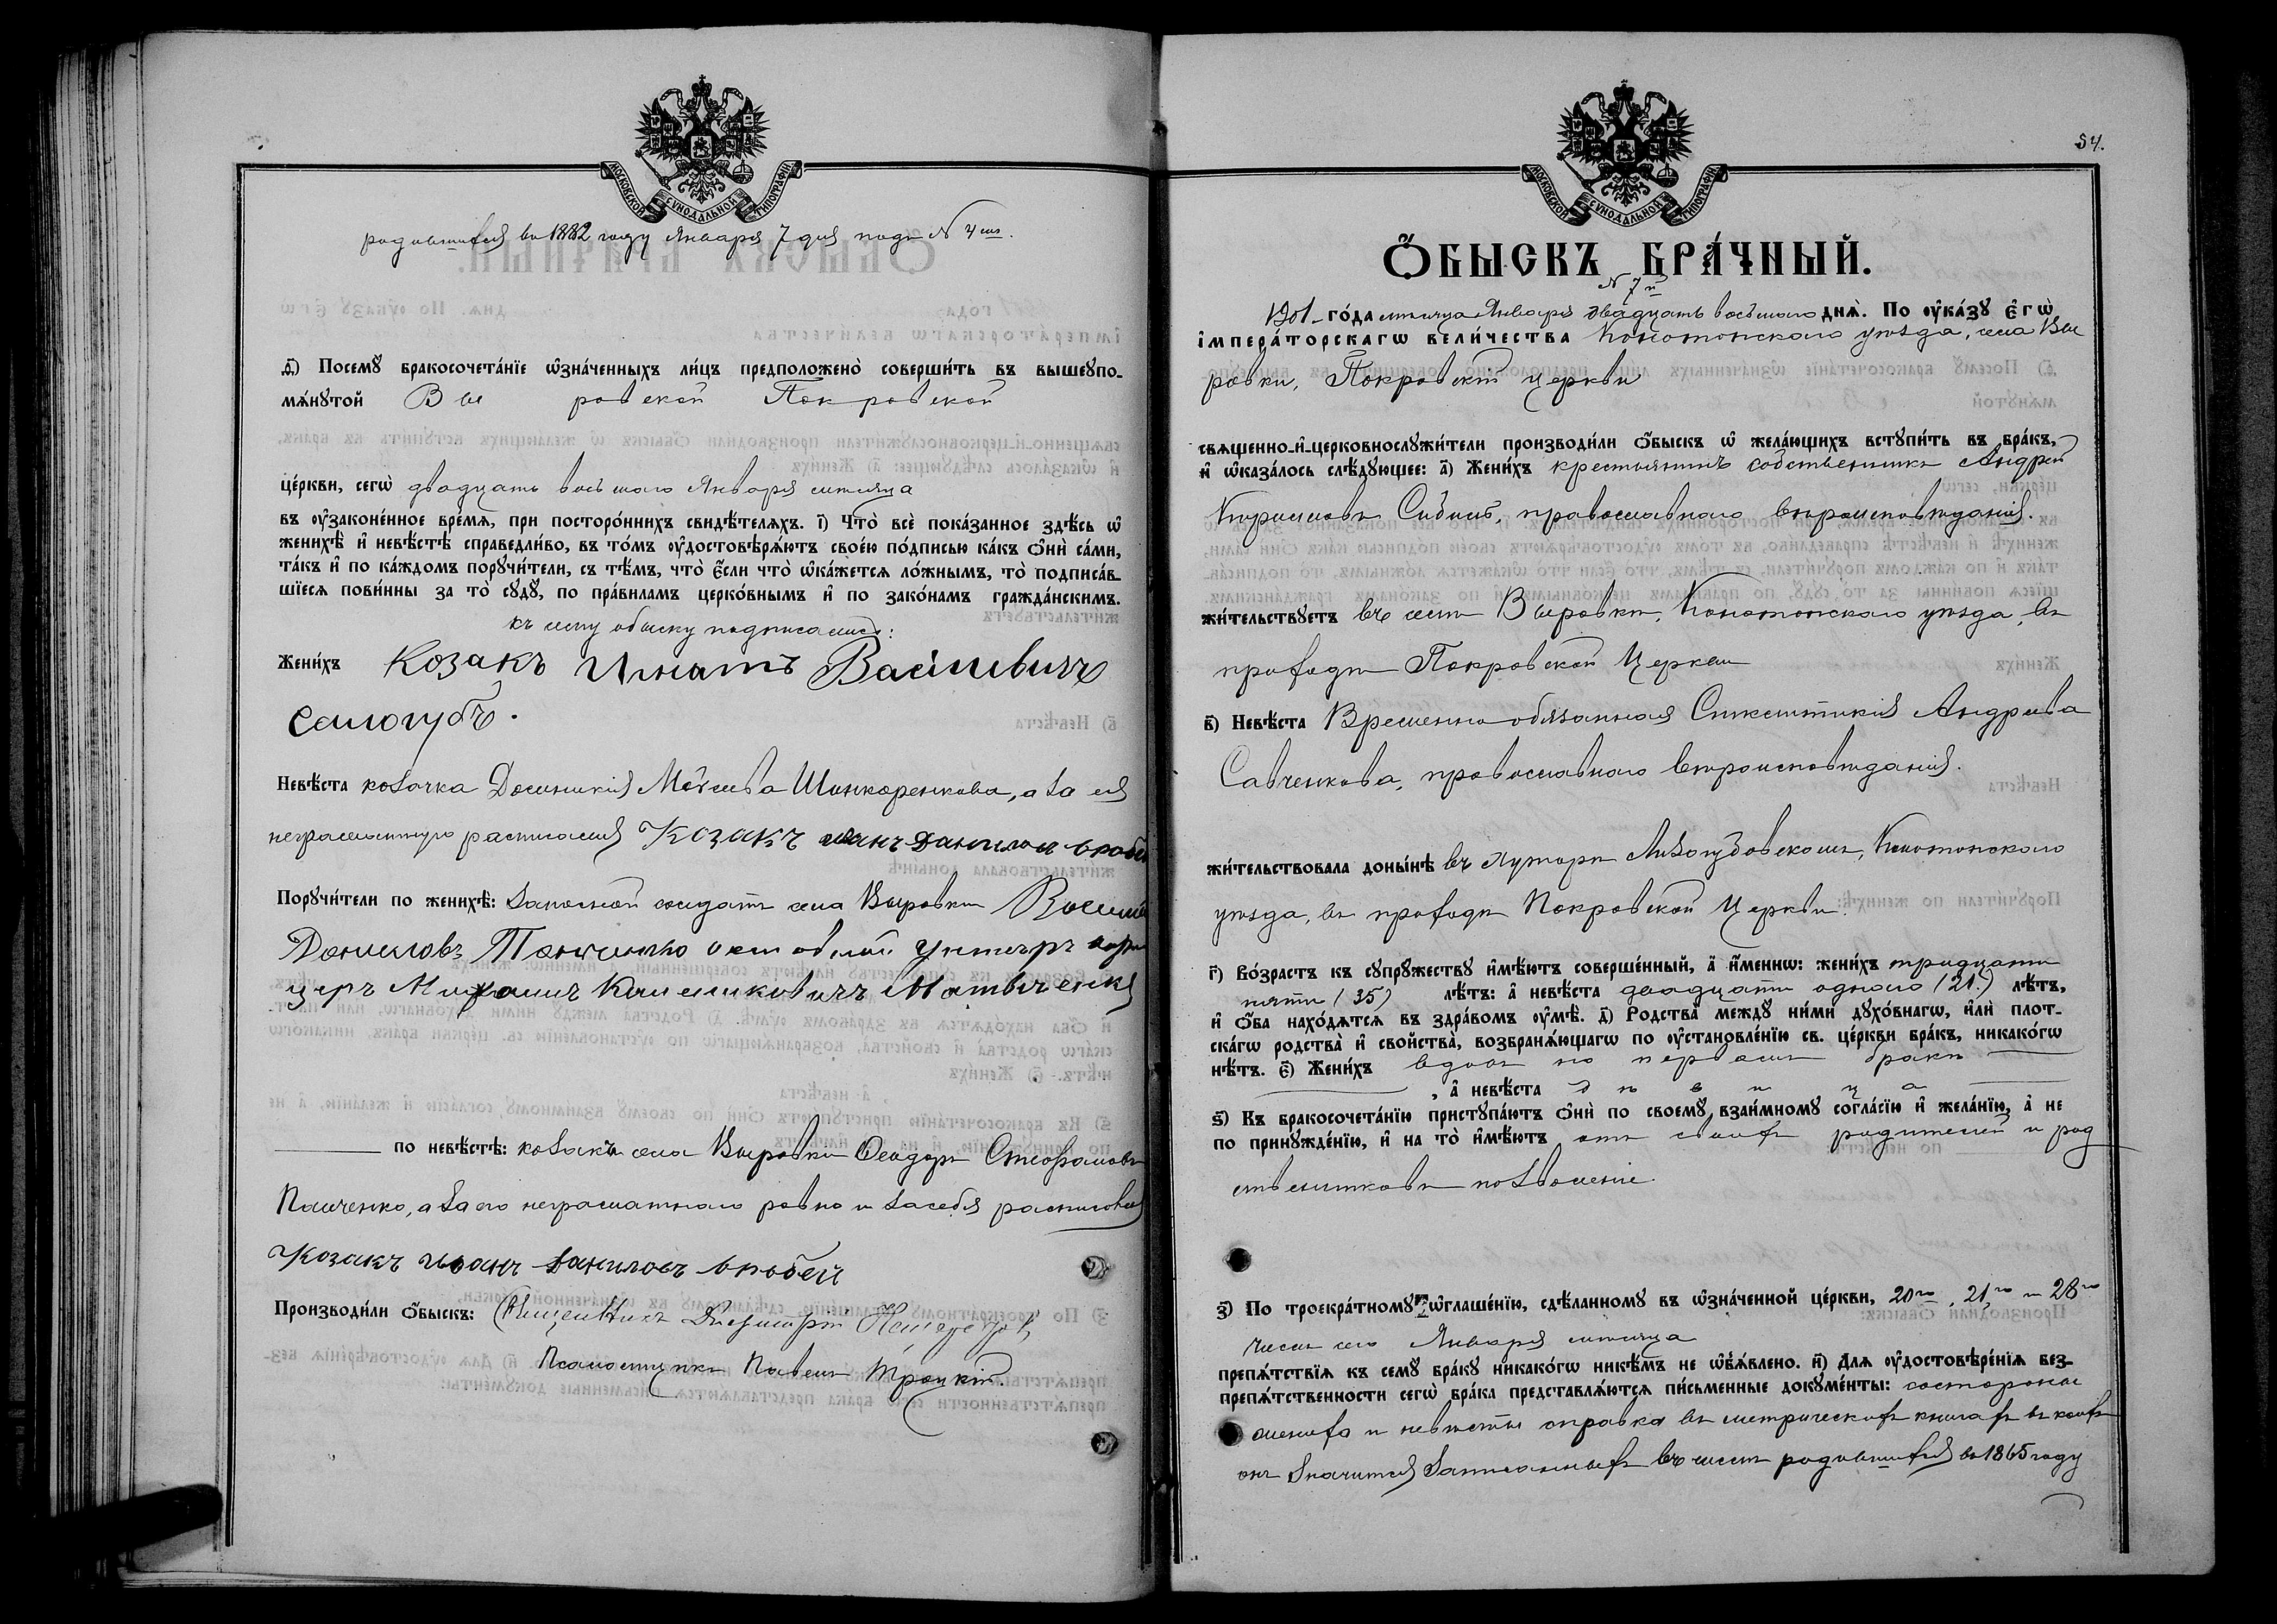 МОСКОВСКОЙ СѴНОДАЛЬНОЙ ТИПОГРАФІИ
родившихся въ 1882 году Января 7 дня подъ № 4 мъ.
д҃) Посемꙋ бракосочета́нїе ѡ҆зна́ченныхъ ли́цъ предположено̀ соверши́ть въ вышеꙋпо-
мѧ́нꙋтой Вы ровской Покровской
це́ркви, сегѡ̀ двадцать восьмаго Января мѣсяца
въ ᲂу҆законе́нное вре́мѧ, при посторо́ннихъ свидѣ́телѧхъ. і҃) Что̀ всѐ пока́занное здѣ́сь ѡ҆
женихѣ̀ и҆ невѣ́стѣ справедли́во, въ то́мъ ᲂу҆достовѣрѧ́ютъ свое́ю по́дписью ка́къ ѻ҆нѝ са́ми,
та́къ и҆ по ка́ждомъ порꙋчи́тели, съ тѣ́мъ, что̀ є҆́сли что̀ ѡ҆ка́жетсѧ ло́жнымъ, то̀ подписа́в-
шїесѧ пови́нны за то̀ сꙋдꙋ̀, по пра́виламъ церко́внымъ и҆ по зако́намъ гражда́нскимъ.
къ сему обыску подписались:
Жени́хъ Козакъ Игнатъ Василевичъ
Салогубъ.
Невѣ́ста козачка Домникія Моѵсеева Шинкаренкова, а за нея
неграмотную росписался Козакъ иванъ Даниловъ
Порꙋчи́тели по женихѣ̀: запасной солдатъ села Выровки
Даниловъ
Михаилъ Матвѣенко
по невѣ́стѣ: козакъ села Выровки Ѳеодоръ Стефановъ
Панченко, а за его неграматнаго равно и за себя росписовался
Козакъ иванъ Даниловъ
Производи́ли ѻ҆́быскъ: Священникъ Димитрій
Псаломщикъ Павелъ Троцкій.
54.
МОСКОВСКОЙ СѴНОДАЛЬНОЙ ТИПОГРАФІИ
Ѻ҆́БЫСКЪ БРА́ЧНЫЙ.
№ 7 й
1901 го́да мѣсяца Января двадцать восьмаго днѧ̀. По ᲂу҆ка́зꙋ є҆гѡ̀
і҆мпера́торскагѡ вели́чества Конотопскаго уѣзда, села Вы
ровки, Покровской церкви
свѧщенно-и҆-церковнослꙋжи́тели производи́ли ѻ҆́быскъ ѡ҆ жела́ющихъ встꙋпи́ть въ бра́къ,
и҆ ѡ҆каза́лось слѣ́дꙋющее: а҃) Жени́хъ крестьянинъ собственникъ Андрей
Кириловъ православнаго вѣроисповѣданія.
жи́тельствꙋетъ въ селѣ Выровкѣ, Конотопскаго уѣзда, въ
приходѣ Покровской Церкви
в҃) Невѣ́ста Временно обязанная Синклитикія Андреева
Савченкова, православнаго вѣроисповѣданія.
жи́тельствовала доны́нѣ въ хуторѣ Лизогубовскомъ, Конотопскаго
уѣзда, въ приходѣ Покровской Церкви.
г҃) Во́зрастъ къ сꙋпрꙋ́жествꙋ и҆мѣ́ютъ соверше́нный, а҆ и҆́меннѡ: жени́хъ тридцати
пяти (35) лѣ́тъ: а҆ невѣ́ста двадцати одного (21.) лѣ́тъ,
и҆ ѻ҆́ба нахо́дѧтсѧ въ здра́вомъ ᲂу҆мѣ̀. д҃) Родства̀ междꙋ̀ ни́ми дꙋхо́внагѡ, и҆лѝ плот-
ска́гѡ родства̀ и҆ свойства̀, возбранѧ́ющагѡ по ᲂу҆становле́нїю св. це́ркви бра́къ, никако́гѡ
нѣ́тъ. є҃) Жени́хъ вдовъ по первомъ бракѣ
, а҆ невѣ́ста дѣвица
ѕ҃) Къ бракосочета́нїю пристꙋпа́ютъ ѻ҆нѝ по своемꙋ̀ взаи́мномꙋ согла́сїю и҆ жела́нїю, а҆ не
по принꙋжде́нїю, и҆ на то̀ и҆мѣ́ютъ отъ своихъ родителей и род
ственниковъ позволеніе.
з҃) По троекра́тномꙋ ѡ҆глаше́нїю, сдѣ́ланномꙋ въ ѡ҆зна́ченной це́ркви, 20го, 21го и 28го
числъ сего Января мѣсяца
препѧ́тствїѧ къ семꙋ̀ бра́кꙋ никако́гѡ никѣ́мъ не ѡ҆б̾ѧ́влено. и҃) Длѧ ᲂу҆достовѣре́нїѧ без-
препѧ́тственности сегѡ̀ бра́ка представлѧ́ютсѧ пи́сьменные докꙋме́нты: со стороны
жениха и невѣсты справка въ метрическихъ книгахъ въ коихъ
онъ значится записаннымъ въ числѣ родившихся въ 1865 году